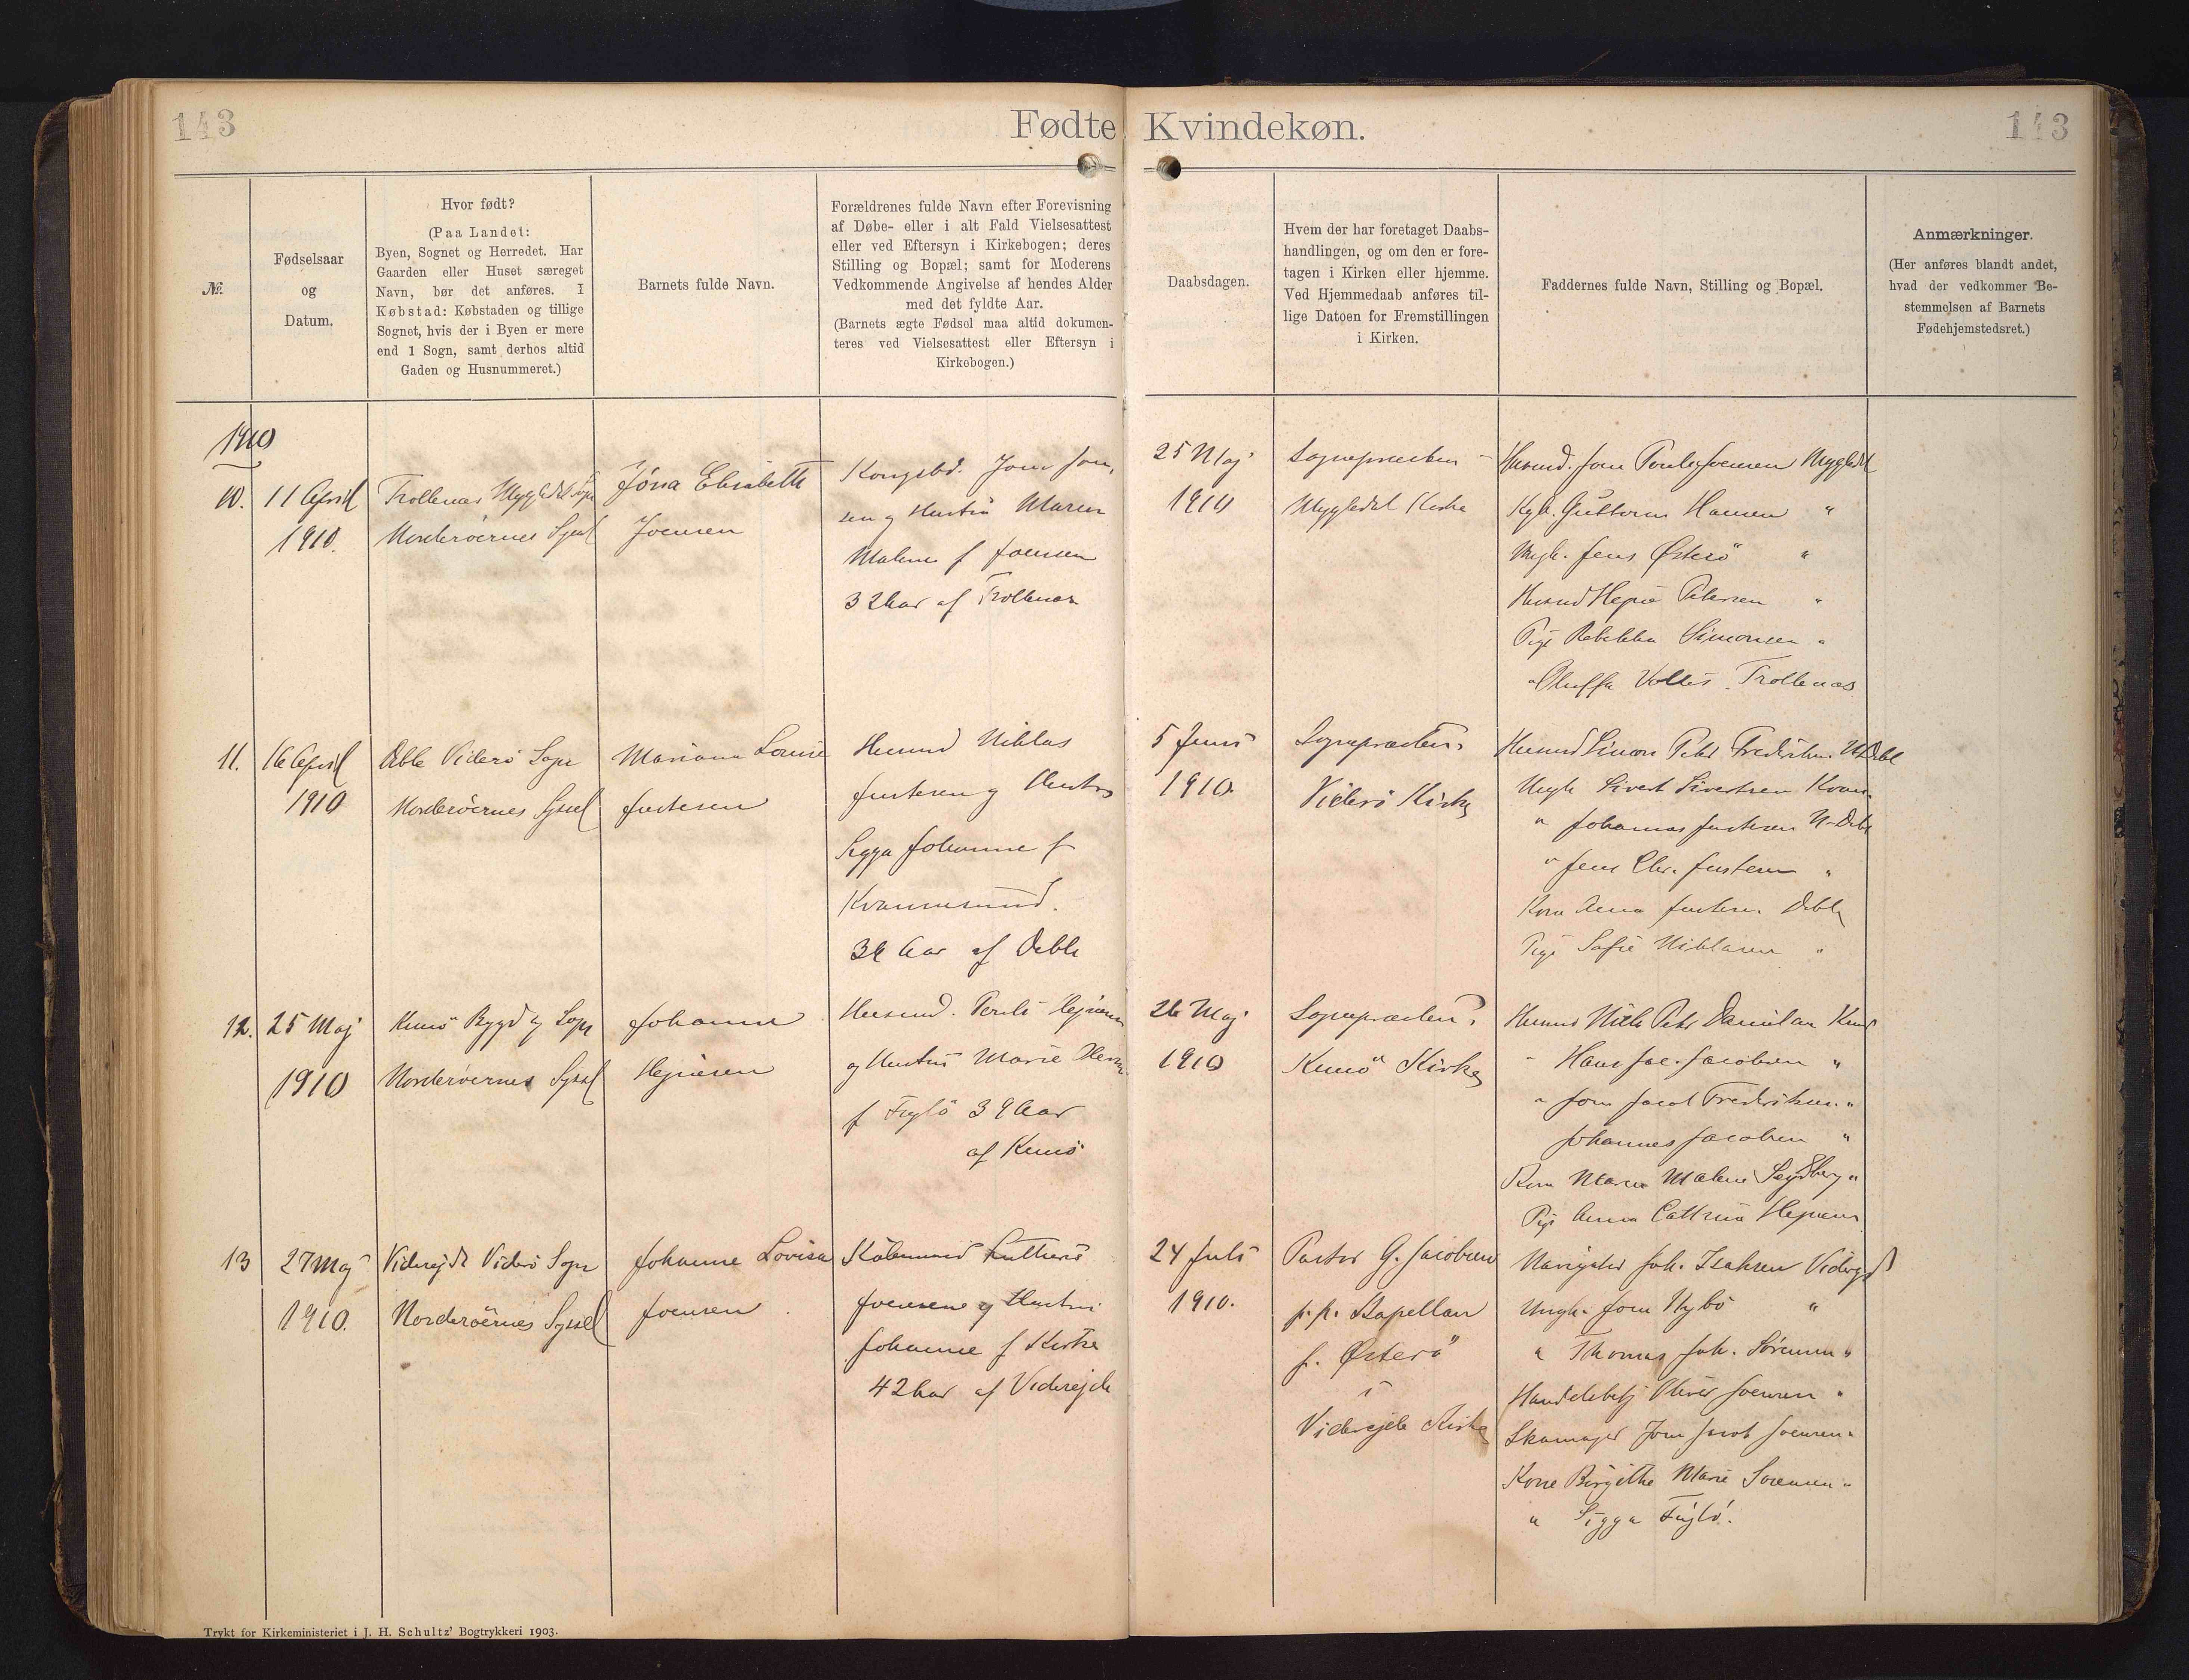 143
Fødte Kvindekøn.
143
№.
Fødselsaar
og
Datum.
Hvor født?
(Paa Landet:
Byen, Sognet og Herredet. Har
Gaarden eller Huset særeget
Navn, bør det anføres. I
Købstad: Købstaden og tillige
Sognet, hvis der i Byen er mere
end 1 Sogn, samt derhos altid
Gaden og Husnummeret.)
Barnets fulde Navn.
Forældrenes fulde Navn efter Forevisning
af Døbe- eller i alt Fald Vielsesattest
eller ved Eftersyn i Kirkebogen; deres
Stilling og Bopæl; samt for Moderens
Vedkommende Angivelse af hendes Alder
med det fyldte Aar.
(Barnets ægte Fødsel maa altid dokumen-
teres ved Vielsesattest eller Eftersyn i
Kirkebogen.)
Daabsdagen.
Hvem der har foretaget Daabs-
handlingen, og om den er fore-
tagen i Kirken eller hjemme.
Ved Hjemmedaab anføres til-
lige Datoen for Fremstillingen
i Kirken.
Faddernes fulde Navn, Stilling og Bopæl.
Anmærkninger.
(Her anføres blandt andet,
hvad der vedkommer Be-
stemmelsen af Barnets
Fødehjemstedsret.)
1910
10.
11 April
1910.
Trollenæs Mygledal Sogn
Norderøernes Syssel
Jóna Elisabeth
Joensen
Kongsbd. Joen Joen-
sen og Hustru Maren
Malene f Joensen
32 Aar af Trollenæs
25 Maj
1910
Sognepræsten
Mygledal Kirke
Husmd. Joen Poulsen Joensen Mygledal
Kgb. Guttorm Hansen "
Ungk. Jens Østerø "
Husmd Hejne Petersen "
Pige Rebekka Simonsen "
" Oluffa Trollenæs
11.
16 April
1910
Deble Viderø Sogn
Norderøernes Syssel
Mariana Louise
Justesen
Husmd Niklas
Justesen og Hustru
Sigga Johanne f
Kvannesund.
36 Aar af Deble
5 Juni
1910.
Sognepræsten.
Viderø Kirke
Husmd Simon Peter Frederiksen N-Deble
Ungk Sivert Sivertsen Kvan.
" Johannes Justesen N-Deble
" Jens Chr. Justesen "
Kone Anna Justesen Deble
Pige Sofie Niklasen "
12.
25 Maj
1910
Kunø Bygd og Sogn
Norderøernes Syssel
Johanne
Hejnesen
Husmd. Poul Hejnesen
og Hustru Marie
f Fuglø 39 Aar
af Kunø
26 Maj
1910
Sognepræsten.
Kunø Kirke
Husmd Niels Peter Danielsen Kunø
" Hans Jac. Jacobsen "
" Joen Jacob Frederiksen "
Johannes Jacobsen "
Kone Maren Malene "
Pige Anna Cathrina Hejnesen
13
27 Maj
1910.
Viderejde Viderø Sogn
Norderøernes Syssel
Johanne Lovisa
Joensen
Købmand
Joensen og Hustru
Johanne f Kirke
42 Aar af Viderejde
24 Juli
1910.
Pastor G. Jacobsen
p.p. Kapellan
f. Østerø
i
Viderejde Kirke
Navigatør Joh. Isaksen Viderejde
Ungk. Joen Nybø "
" Thomas Joh. Sörensen "
Handelsbetj Oliver Joensen "
Skomager Joen Jacob Joensen "
Kone Birgithe Marie Sörensen "
" Sigga Fuglö.
Trykt for Kirkeministeriet i J. H. Schultz' Bogtrykkeri 1903.